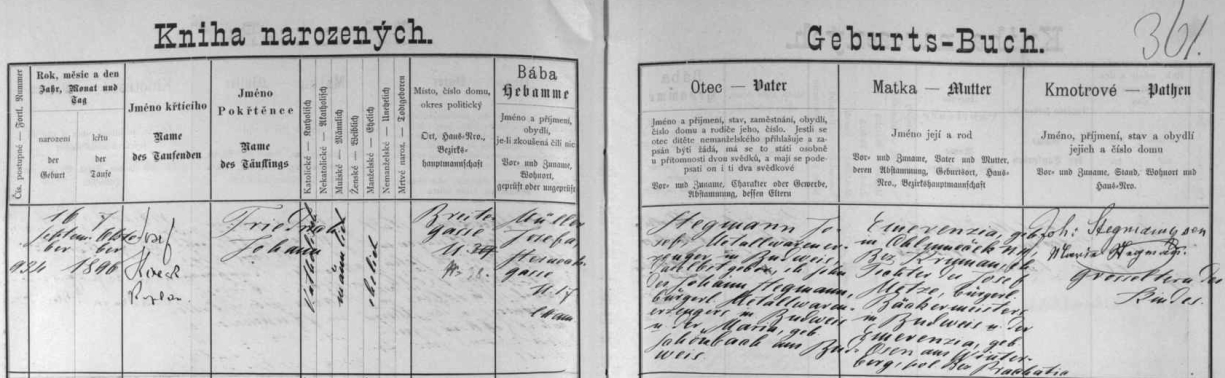 Kniha narozených.
Čís. postupné — Fortl. Nummer
Rok, měsíc a den
Jahr, Monat und
Tag
narození
der
Geburt
křtu
der
Taufe
Jméno křtícího
Name
des Taufenden
Jméno
Pokřtěnce
Name
des Täuflings
Katolické — Katholisch
Nekatolické — Akatholisch
Mužské — Männlich
Ženské — Weiblich
Manželské — Ehelich
Nemanželské — Unehelich
Mrtvě naroz. — Todtgeboren
Místo, číslo domu,
okres politický
Ort, Haus-Nro.,
Bezirks-
hauptmannschaft
Bába
Hebamme
Jméno a příjmení,
obydlí,
je-li zkoušená čili nic
Vor- und Zuname,
Wohnort,
geprüft oder ungeprüft
16
Septem-
ber
7
Octo-
ber
1896
Josef
Friedrich
Johann
Katholisch
männlich
ehelich
Breite
gasse
N.
Müller
Josefa,
gasse
N. 17
exam
Geburts-Buch.
361.
Otec — Vater
Jméno a příjmení, stav, zaměstnání, obydlí,
číslo domu a rodiče jeho, číslo. Jestli se
otec dítěte nemanželského přihlásiv za-
psán býti žádá, má se to státi osobně
u přítomnosti dvou svědků, a mají se pode-
psati on i ti dva svědkové
Vor- und Zuname, Charakter oder Gewerbe,
Abstammung, dessen Eltern
Matka — Mutter
Jméno její a rod
Vor- und Zuname, Vater und Mutter,
deren Abstammung, Geburtsort, Haus-
Nro., Bezirkshauptmannschaft
Kmotrové — Pathen
Jméno, příjmení, stav a obydlí
jejich a číslo domu
Vor- und Zuname, Stand, Wohnort und
Haus-Nro.
Stegmann Jo-
sef, Metallwarener-
zeuger in Budweis,
daselbst gebor., eh. Sohn
des Johann Stegmann,
bürgerl. Metallwaren-
erzeugers in Budweis
u. der Maria, geb.
Schönbauk aus Bud-
weis.
Emerenzia, geb.
in
Bez. Krumau, eh.
Tochter des Josef
Metze, bürgerl.
Bäckermeisters
in Budweis u. der
Emerenzia, geb.
Osen aus Winter-
berg, pol. Bez. Prachatitz
Joh: Stegmann sen
Maria Stegmann
Grosseltern des
Kindes